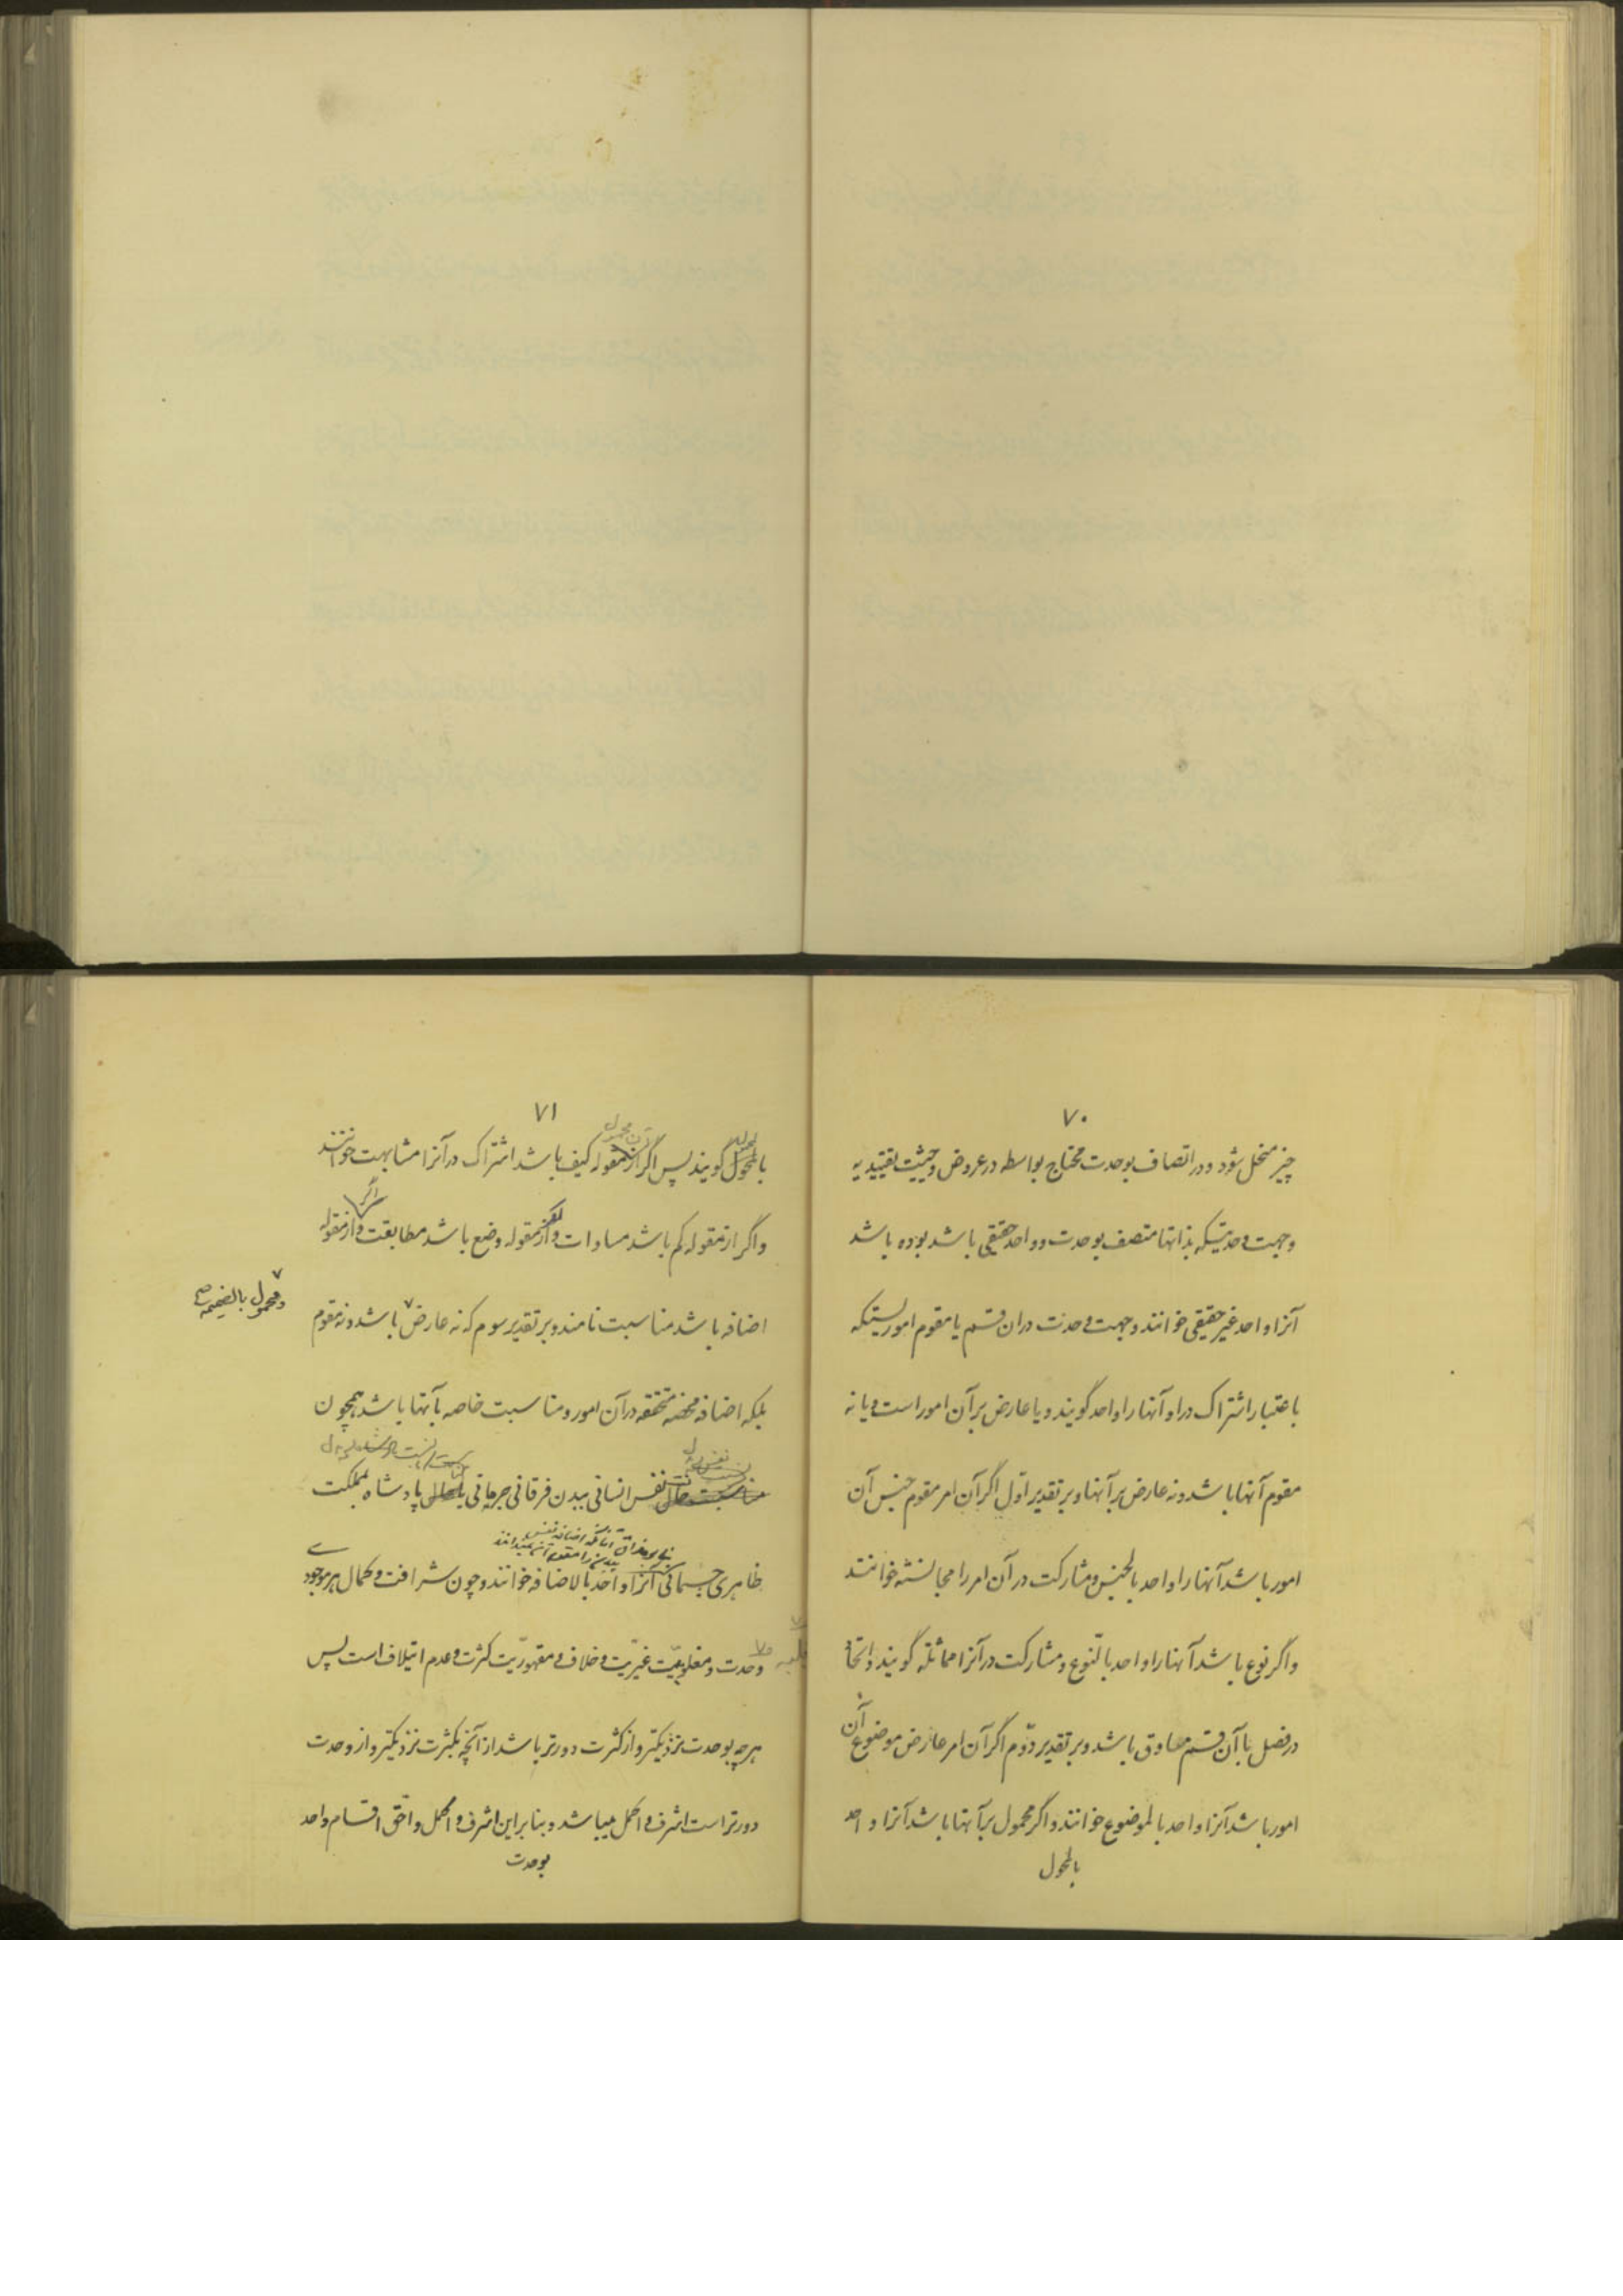 ۷۰
چیز منحل شود و در اتصاف بوحدت محتاج بواسطه در عروض و حیثیت تقییدیه
و جهت وحدتیکه بذاتها متصف بوحدت و واحد حقیقی باشد بوده باشد
آنرا واحد غیر حقیقی خوانند و جهت وحدت در ان قسم یا مقوم اموریستکه
باعتبار اشتراک در او آنها را واحد گویند و یا عارض بر آن امور است و یا نه
مقوم آنها باشد و نه عارض بر آنها و بر تقدیر اوّل اگر آن امر مقوم جنس آن
امور باشد آنها را واحد بالجنس و مشارکت در آن امر را مجانسته خوانند
و اگر نوع باشد آنها را واحد بالنّوع و مشارکت در آنرا مماثلة گویند و اتحاد
در فصل با آن قسم مساوق باشد و بر تقدیر دوّم اگر آن امر عارض موضوع آن
امور باشد آنرا واحد بالموضوع خوانند و اگر محمول بر آنها باشد آنرا واحد
بالمحول
۷۱
بالمحول گویند پس اگر از مقوله کیف باشد اشتراک در آنرا مشابهت خوانند
و اگر از مقوله کم باشد مساوات و از مقوله وضع باشد مطابقت و اگر از مقوله
اضافه باشد مناسبت نامند و بر تقدیر سوم که نه عارض باشد و نه مقوم
و محمول بالضمیمه
بلکه اضافه محضه متحققه در آن امور و مناسبت خاصه بآنها باشد همچون
نفس انسانی ببدن فرقانی جرمانی یا پادشاه بمملکت
ظاهری جسمانی آنرا واحد بالاضافه خوانند و چون شرافت و کمال هر موجودی
وحدت و مغلوبیّت غیریّت و خلاف و مقهوریّت کثرت و عدم ایتلاف است پس
هر چه بوحدت نزدیکتر و از کثرت دورتر باشد از آنچه بکثرت نزدیکتر و از وحدت
دورتر است اشرف و اکمل میباشد و بنا بر این اشرف و اکمل و احقّ اقسام واحد
بوحدت